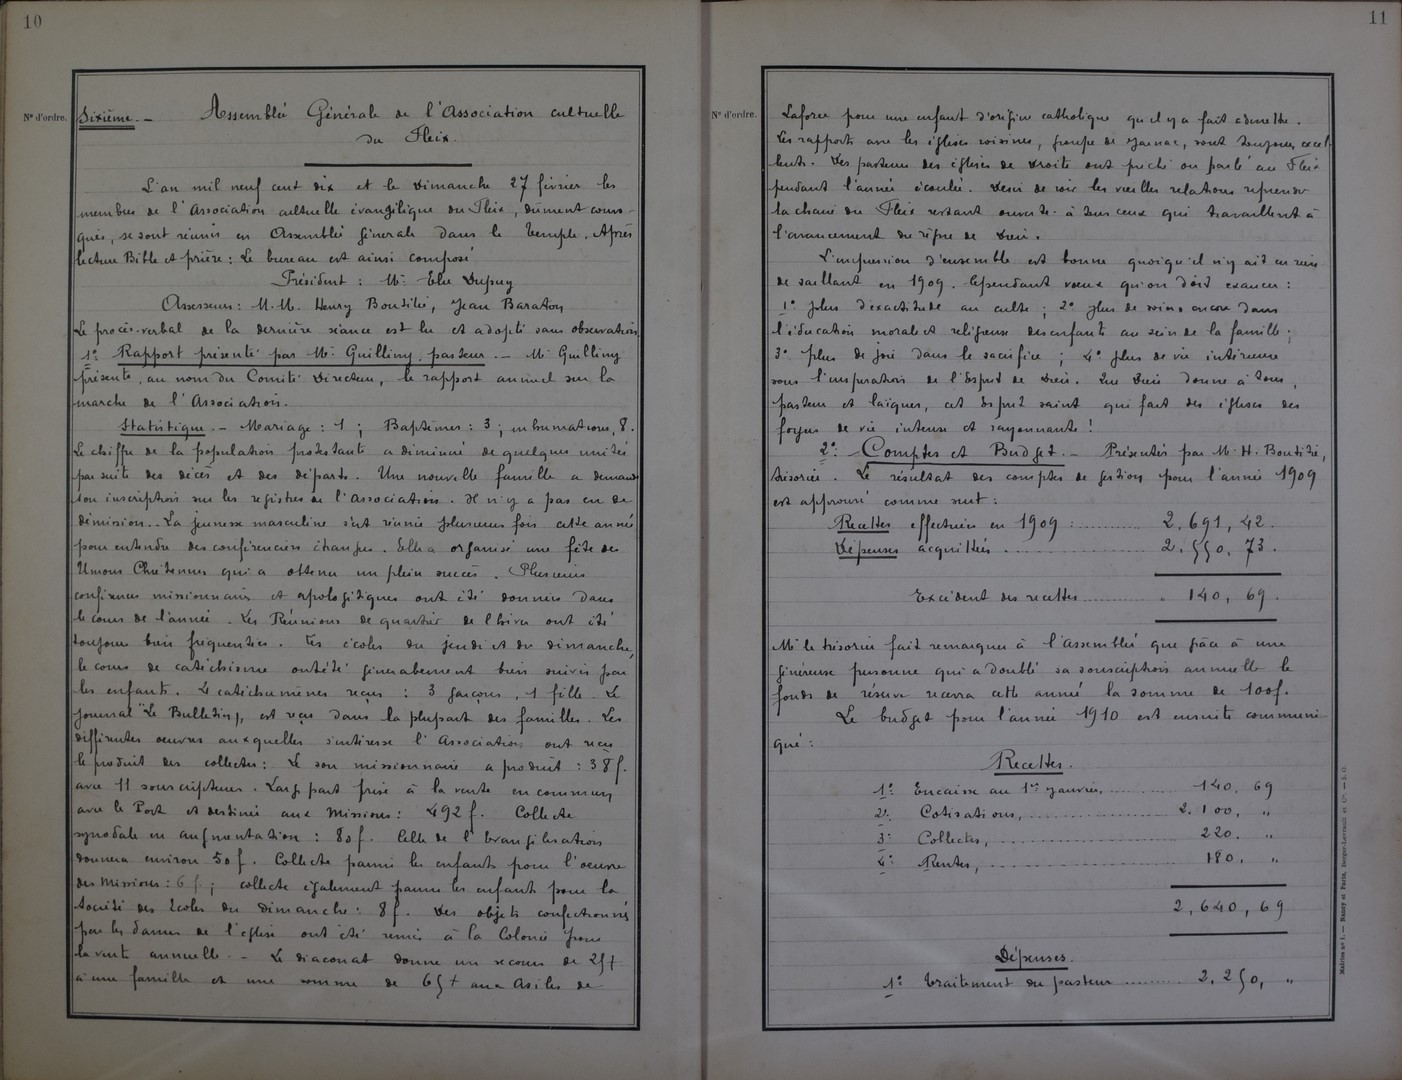 10
N° d'ordre.
Sixième. - Assemblée Générale de l'Association cultuelle
du Fleix.
L'an mil neuf cent dix et le Dimanche 27 février les
membres de l'Association cultuelle évangélique du Fleix, dûment convo-
qués, se sont réunis en Assemblée générale dans le Temple. Après
lecture Bible et prière : Le bureau est ainsi composé
Président : Mr Elie Dupuy
Assesseurs : M.M. Henry Boutitié, Jean Baraton
Le procès-verbal de la dernière séance est lu et adopté sans observation.
1° Rapport présenté par Mr Guilliny, pasteur. - Mr Guilliny
présente, au nom du Comité Directeur, le rapport annuel sur la
marche de l'Association.
Statistique. - Mariage : 1 ; Baptêmes : 3 ; inhumations, 8.
Le chiffre de la population protestante a diminué de quelques unités
par suite des décès et des départs. Une nouvelle famille a demandé
son inscription sur les registres de l'Association. Il n'y a pas eu de
démission. - La jeunesse masculine s'est réunie plusieurs fois cette année
pour entendre des conférenciers étrangers. Elle a organisé une fête des
Unions Chrétiennes qui a obtenu un plein succès. Plusieurs
conférences missionnaires et apologétiques ont été données dans
le cours de l'année. Les Réunions de quartier de l'hiver ont été
toujours bien fréquentées. Les écoles du jeudi et du dimanche,
le cours de catéchisme ont été généralement bien suivis par
les enfants. Le catéchumènes reçus : 3 garçons, 1 fille. Le
journal "Le Bulletin", est reçu dans la plupart des familles. Les
différentes oeuvres auxquelles s'intéresse l'Association ont reçu
le produit des collectes : Le sou missionnaire a produit : 38 f.
avec 11 souscripteurs. Large part prise à la vente en commun
avec le Port et destinée aux Missions : 492 f. Collecte
synodale en augmentation : 80 f. Celle de l'Evangélisation
donnera environ 50 f. Collecte parmi les enfants pour l'oeuvre
des Missions : 6 f ; collecte également parmi les enfants pour la
Société des Ecoles du Dimanche : 8 f. Des objets confectionnés
par les dames de l'église ont été remis à la Colonie pour
la vente annuelle. - Le diaconat donne un secours de 25 f
à une famille et une somme de 65 f aux Asiles de
11
N° d'ordre.
Laforce pour une enfant d'origine catholique qu'il y a fait admettre.
Les rapports avec les églises voisines, groupe de Jarnac, sont toujours excel
lents. Des pasteurs des églises de Droite ont prêché ou parlé au Fleix
pendant l'année écoulée. Désir de voir les vieilles relations reprendre
la chaire du Fleix restant ouverte à tous ceux qui travaillent à
l'avancement du règne de Dieu.
L'impression d'ensemble est bonne quoiqu'il n'y ait eu rien
de saillant en 1909. Cependant voeux qu'on doit exaucer :
1° plus d'exactitude au culte ; 2° plus de soins encore dans
l'éducation morale et religieuse des enfants au sein de la famille ;
3° plus de joie dans le sacrifice ; 4° plus de vie intérieure
sous l'inspiration de l'Esprit de Dieu. Que Dieu donne à tous,
pasteur et laïques, cet Esprit saint qui fait des églises des
foyers de vie intense et rayonnante !
2° - Comptes et Budget. - Présentés par Mr H. Boutitié,
trésorier. Le résultat des comptes de gestion pour l'année 1909
est approuvé comme suit :
Recettes effectuées en 1909 : .......... 2,691, 42.
Dépenses acquittées .......... 2,550, 73.
Excédent des recettes .......... 140, 69.
Mr le trésorier fait remarquer à l'Assemblée que grâce à une
généreuse personne qui a doublé sa souscription annuelle le
fonds de réserve recevra cette année la somme de 100 f.
Le budget pour l'année 1910 est ensuite communi
qué :
Recettes.
1° Encaisse au 1er janvier, .......... 140, 69
2° Cotisations, .......... 2.100, "
3° Collectes, .......... 220. "
4° Rentes, .......... 180. "
2,640, 69
Dépenses.
1° Traitement du pasteur .......... 2,250, "
Mairies n° 1. — Nancy et Paris, Berger-Levrault et Cie.